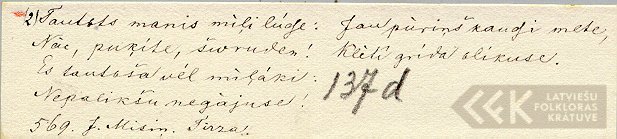 2) Tautots manis mīļi lūdze: Jau pūriņš kaudzi mete,
Nāc, puķīte, šoruden! Klētī grīda olikuse.
Es tautoša vēl mīļāki:
Nepalikšu negājuse! 137d
569. J. Misiņ. Tirza.
LATVIEŠU
FOLKLORAS
KRĀTUVE